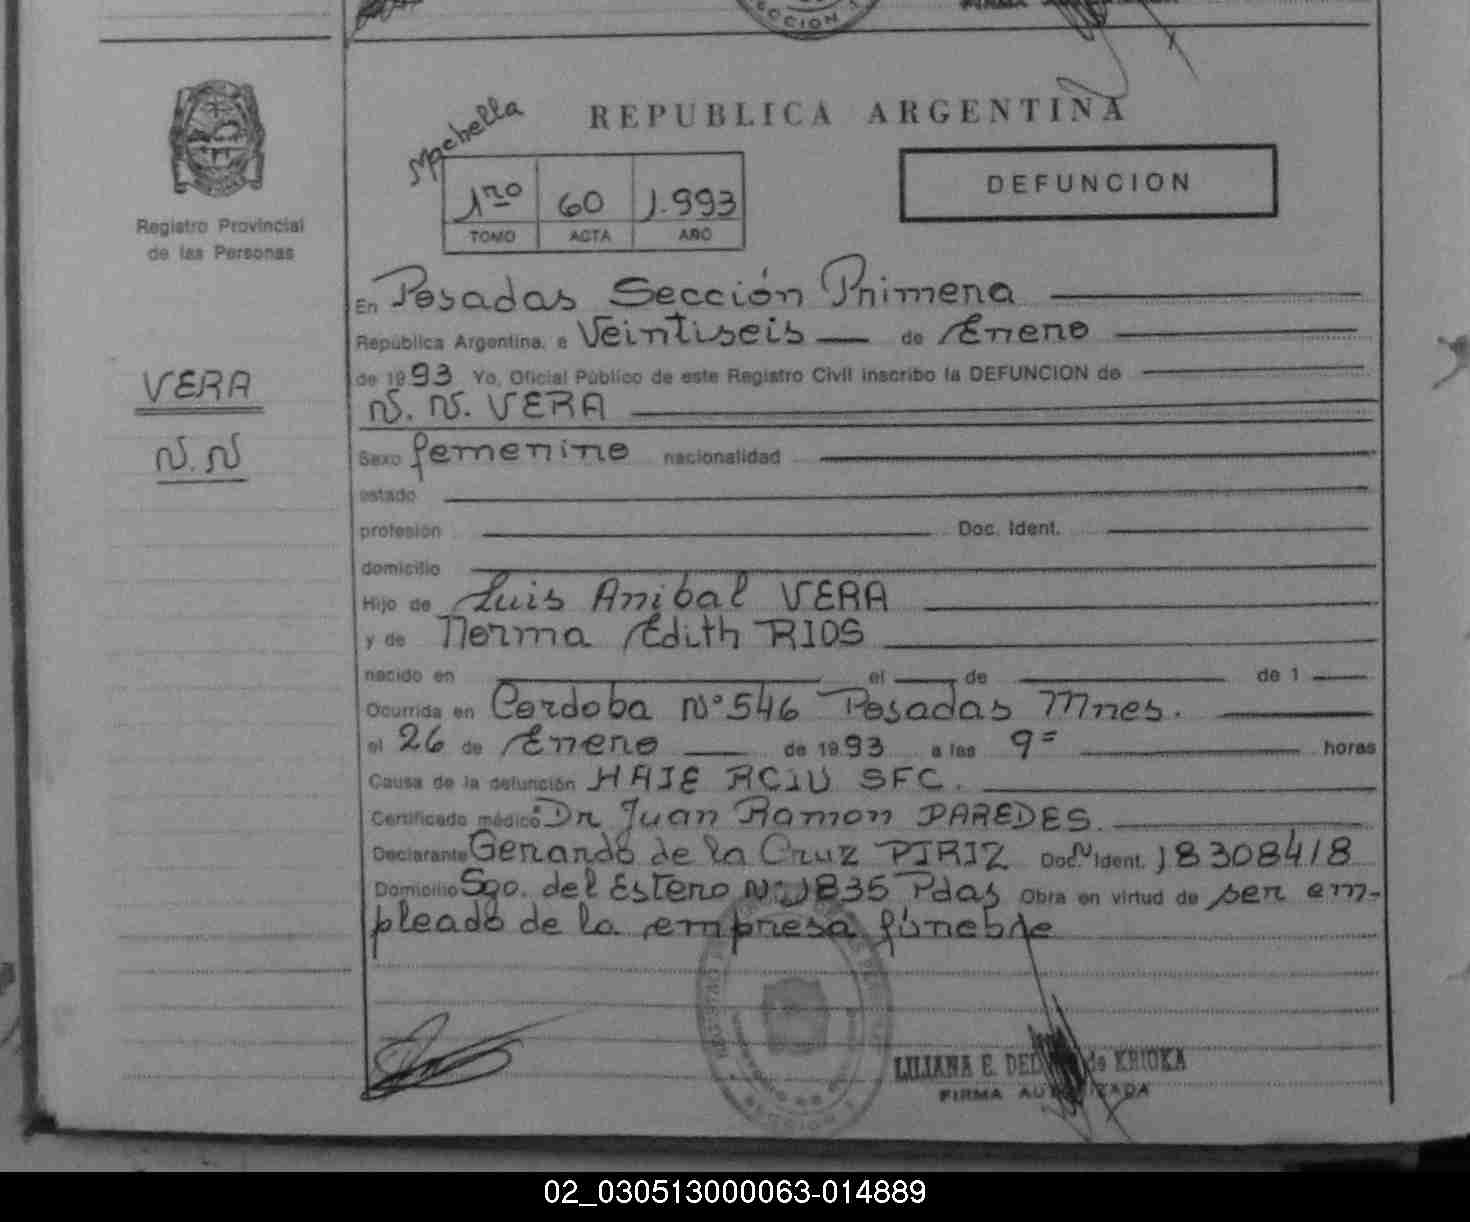 SECCION 1
REPUBLICA ARGENTINA
Registro Provincial
de las Personas
1ro 60 1.993
TOMO ACTA AÑO
DEFUNCION
En Posadas Sección Primera
República Argentina, a Veintiseis de Enero
de 1993 Yo, Oficial Público de este Registro Civil inscribo la DEFUNCION de
N. N. VERA
VERA
N. N
Sexo femenino nacionalidad
estado
profesión Doc. Ident.
domicilio
Hijo de Luis Anibal VERA
y de Norma Edith RIOS
nacido en el de de 1
Ocurrida en Cordoba Nº 546 Posadas Mnes.
el 26 de Enero de 1993 a las 9= horas
Causa de la defunción HAIE RCIU SFC.
Certificado médico Dr Juan Ramon PAREDES.
Declarante Gerardo de la Cruz PIRIZ Doc. Ident. 18308418
Domicilio Sgo. del Estero Nº 1835 Pdas Obra en virtud de ser em-
pleado de la empresa fúnebre
LILIANA E. de KRIOKA
FIRMA AUTORIZADA
SECCION 1
02_030513000063-014889